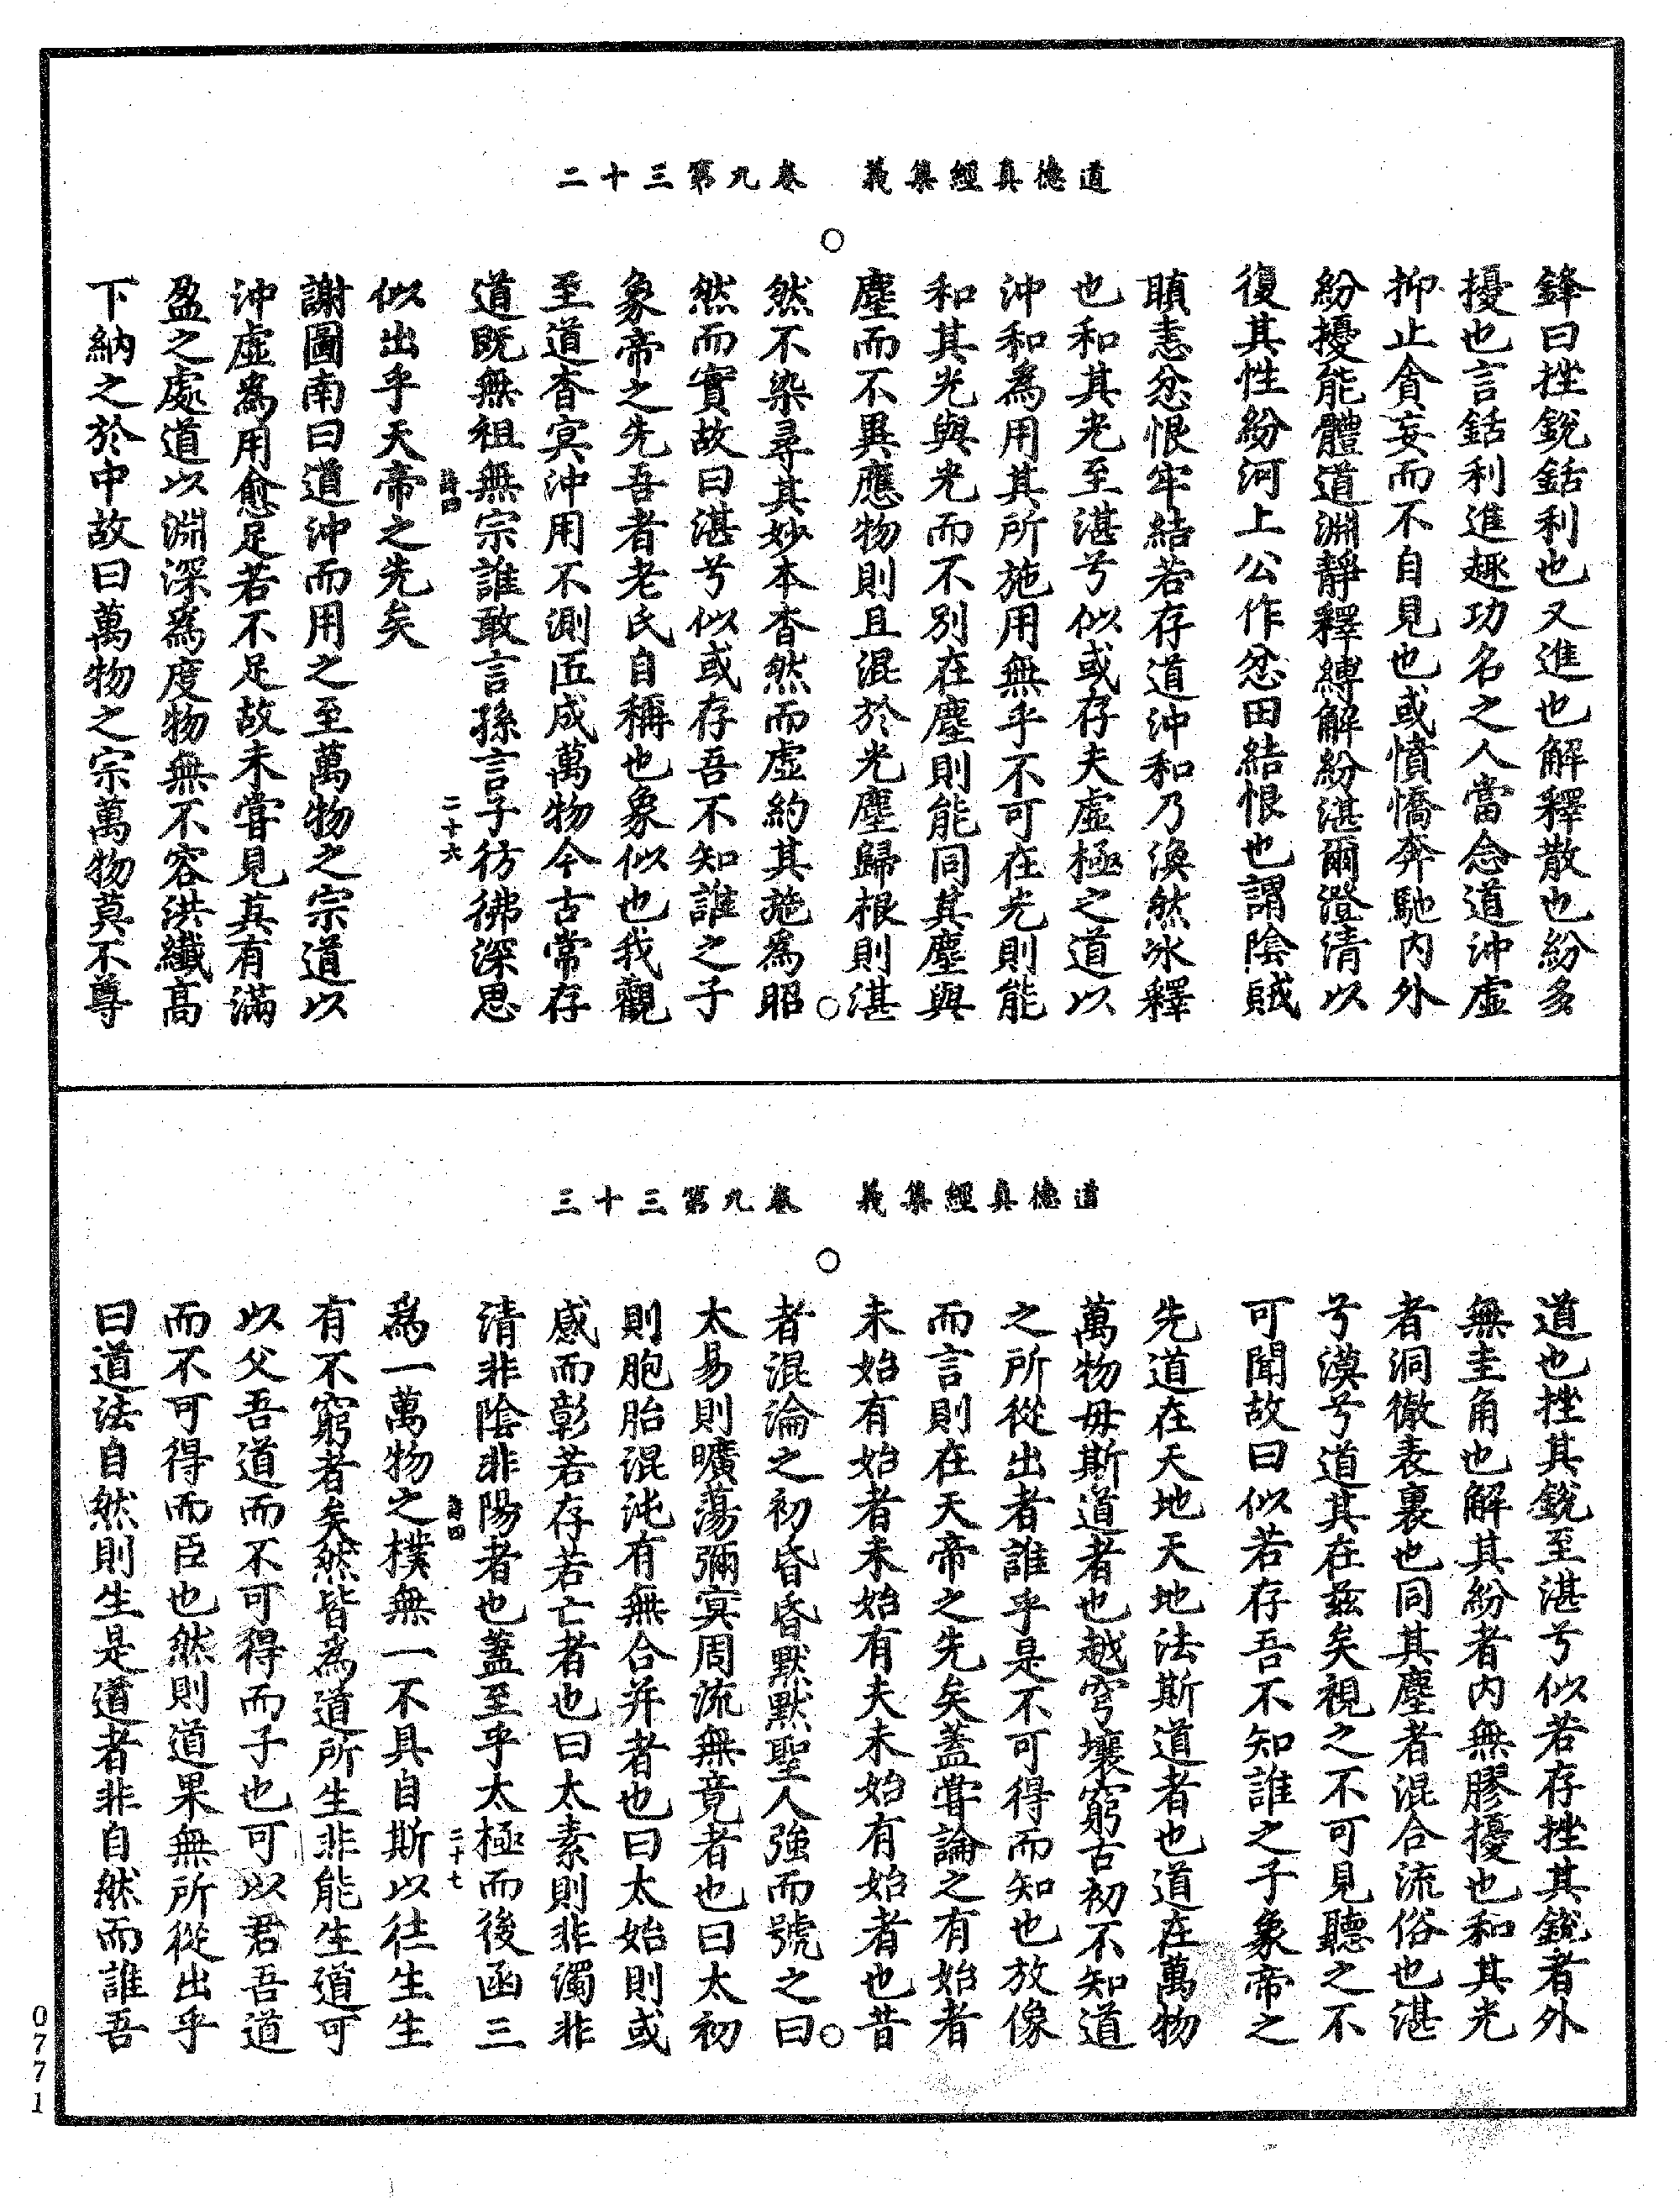 道德真經集義　卷九第三十二
鋒曰挫銳銛利也又進也解釋散也紛多
擾也言銛利進趣功名之人當念道沖虛
抑止貪妄而不自見也或憤憍奔馳內外
紛擾能體道淵靜釋縛解紛湛爾澄清以
復其性紛河上公作忿田結恨也謂陰賊
瞋恚忿恨牢結若存道沖和乃渙然冰釋
也和其光至湛兮似或存夫虛極之道以
沖和為用其所施用無乎不可在光則能
和其光與光而不別在塵則能同其塵與
塵而不異應物則且混於光塵歸根則湛
然不染尋其妙本杳然而虛約其施為昭
然而實故曰湛兮似或存吾不知誰之子
象帝之先吾者老氏自稱也象似也我觀
至道杳冥沖用不測匠成萬物今古常存
道既無祖無宗誰敢言孫言子彷彿深思
詩四
二十六
似出乎天帝之先矣
謝圖南曰道沖而用之至萬物之宗道以
沖虛為用愈足若不足故未嘗見其有滿
盈之處道以淵深為度物無不容洪纖高
下納之於中故曰萬物之宗萬物莫不尊
道德真經集義　卷九第三十三
道也挫其銳至湛兮似若存挫其銳者外
無圭角也解其紛者內無膠擾也和其光
者洞徹表裏也同其塵者混合流俗也湛
兮漠兮道其在茲矣視之不可見聽之不
可聞故曰似若存吾不知誰之子象帝之
先道在天地天地法斯道者也道在萬物
萬物母斯道者也越穹壤窮古初不知道
之所從出者誰乎是不可得而知也放像
而言則在天帝之先矣蓋嘗論之有始者
未始有始者未始有夫未始有始者也昔
者混淪之初昏昏默默聖人強而號之曰
太易則曠蕩彌冥周流無竟者也曰太初
則胞胎混沌有無合并者也曰太始則或
感而彰若存若亡者也曰太素則非濁非
清非陰非陽者也蓋至乎太極而後函三
詩四
二十七
為一萬物之樸無一不具自斯以往生生
有不窮者矣然皆為道所生非能生道可
以父吾道而不可得而子也可以君吾道
而不可得而臣也然則道果無所從出乎
曰道法自然則生是道者非自然而誰吾
0771